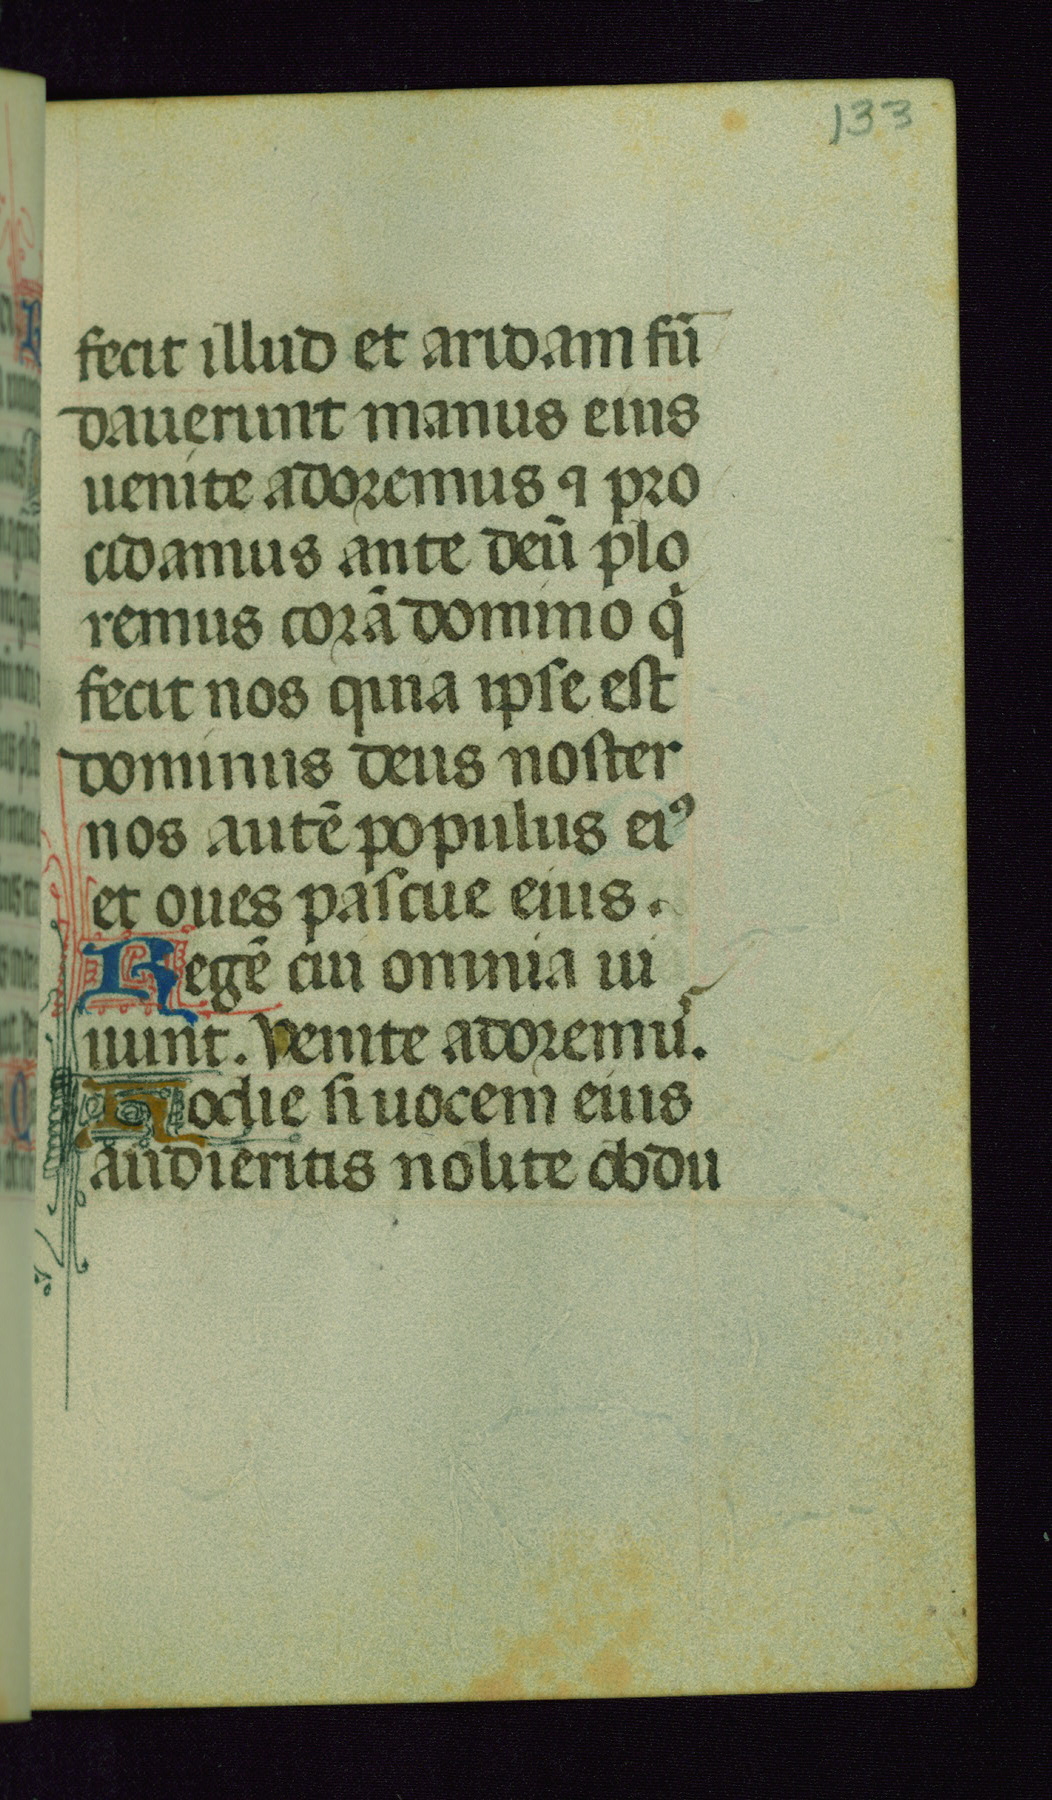 133
fecit illud et aridam fū
dauerunt manus eius
uenite adoremus ⁊ pro
cidamus ante deū plo
remus corā domino qͥ
fecit nos quia ipse est
dominus deus noster
nos autē populus eiꝰ
et oues pascue eius.
Regē cui omnia ui
uunt. Venite adoremuˢ.
Hodie si uocem eius
audieritis nolite obdu